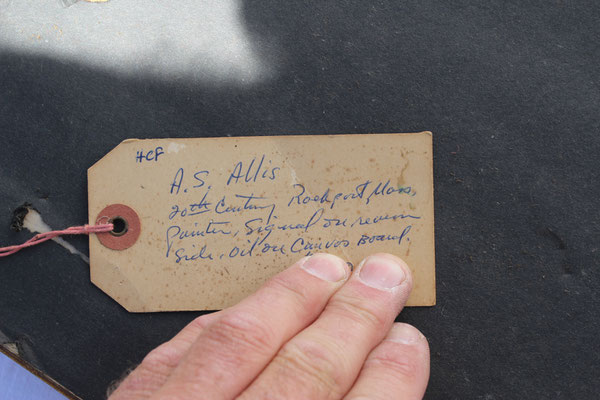 HCF
A.S. Allis
20th Century Rockport, Mass,
painter, Signed on reverse
side. oil on Canvas Board.